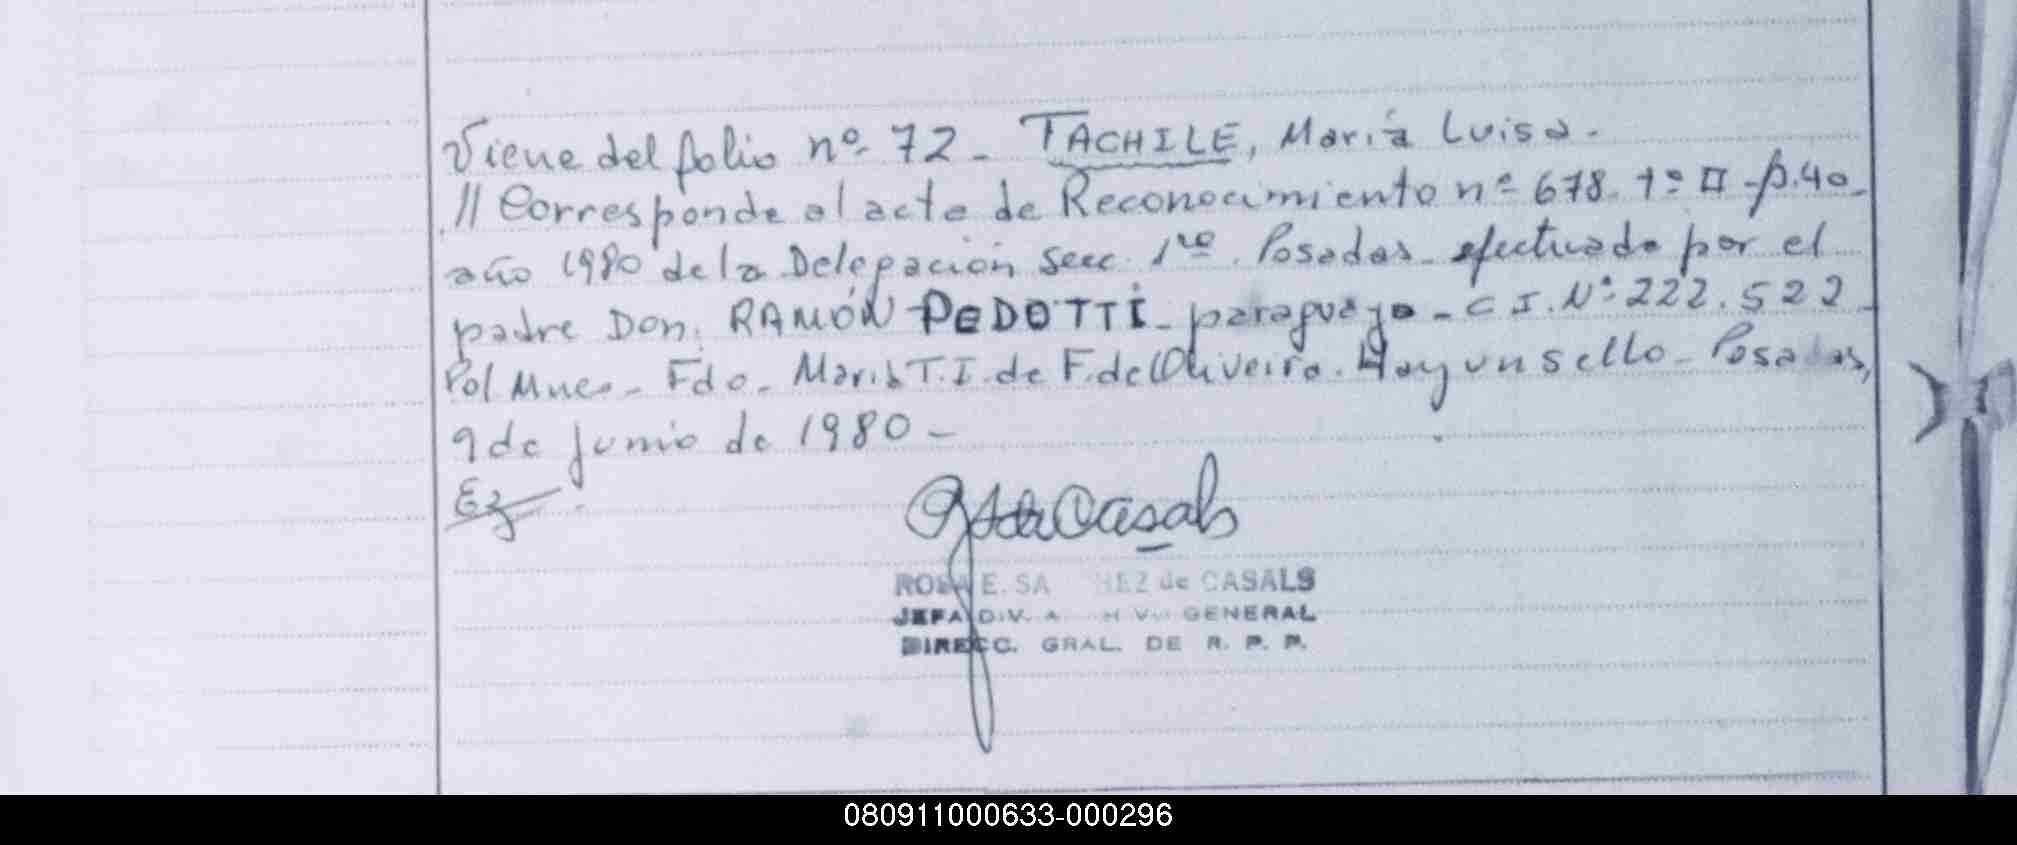 Viene del folio nº 72 - TACHILE, María Luisa.
// Corresponde al acta de Reconocimiento nº 678. tº II - f. 40
año 1980 de la Delegación Secc. 1ra. Posadas - efectuado por el
padre Don. RAMÓN PEDOTTI - paraguayo - C I. Nº 222.522
Pol Mnes - Fdo - María T. I. de F. de Oliveira. Hay un sello - Posadas,
9 de junio de 1980 -
de Casals
ROSA E. SA HEZ de CASALS
JEFA DIV. A H V GENERAL
DIRECC. GRAL. DE R. P. P.
080911000633-000296